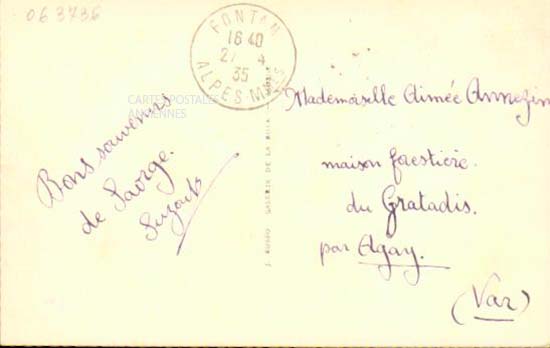 063736
FONTAN
16 40
27 4
35
ALPES-MMES
CARTES POSTALES
ANCIENNES
Bons souvenirs
de Saorge.
Mademoiselle Aimée Annezin
maison forestière.
du Gratadis.
par Agay.
(Var)